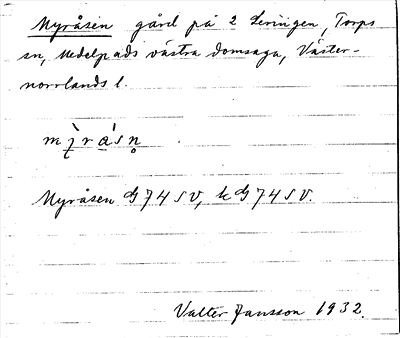 Myråsen gård på 2 Leringen, Torps
sn, Medelpads västra domsaga, Väster-
norrlands l.
Myråsen G 74 SV, k G 74 SV.
Valter Jansson 1932.